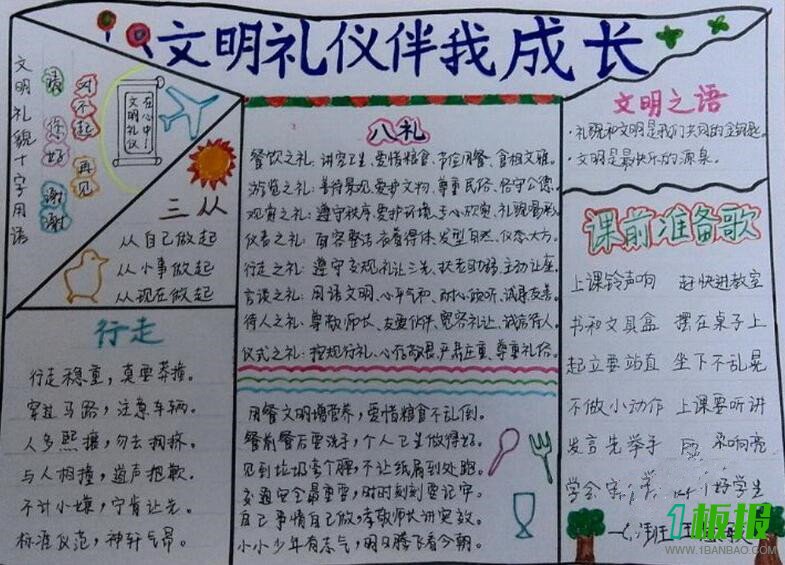 文明礼仪伴我成长
文明礼貌十字用语
请
你好
谢谢
对不起
再见
在心中！
文明礼仪
三从
从自己做起
从小事做起
从现在做起
行走
行走稳重，莫要莽撞。
穿过马路，注意车辆。
人多熙攘，勿去拥挤。
与人相撞，道声抱歉。
不计小嫌，宁肯让先。
标准仪范，神轩气昂。
八礼
餐饮之礼：讲究卫生、爱惜粮食、节俭用餐、食相文雅。
游览之礼：善待景观、爱护文物、尊重民俗、恪守公德。
观赏之礼：遵守秩序、爱护环境、专心欣赏、礼貌喝彩。
仪表之礼：面容整洁、衣着得体、发型自然、仪态大方。
行走之礼：遵守交规、礼让三先、扶老助弱、主动让座。
言谈之礼：用语文明、心平气和、耐心倾听、诚恳友善。
待人之礼：尊敬师长、友爱伙伴、宽容礼让、诚信待人。
仪式之礼：按规行礼、心存敬畏、严肃庄重、尊重礼俗。
用餐文明增营养，爱惜粮食不乱倒。
餐前餐后要洗手，个人卫生做得好。
见到垃圾弯个腰，不让纸屑到处跑。
交通安全最重要，时时刻刻要记牢。
自己事情自己做，孝敬师长讲实效。
小小少年有志气，明日腾飞看今朝。
文明之语
·礼貌和文明是我们共同的金钥匙。
·文明是最快乐的源泉。
课前准备歌
上课铃声响 赶快进教室
书和文具盒 摆在桌子上
起立要站直 坐下不乱晃
不做小动作 上课要听讲
发言先举手 响亮
学会 好学生
班
1板报
WWW.1BANBAO.COM